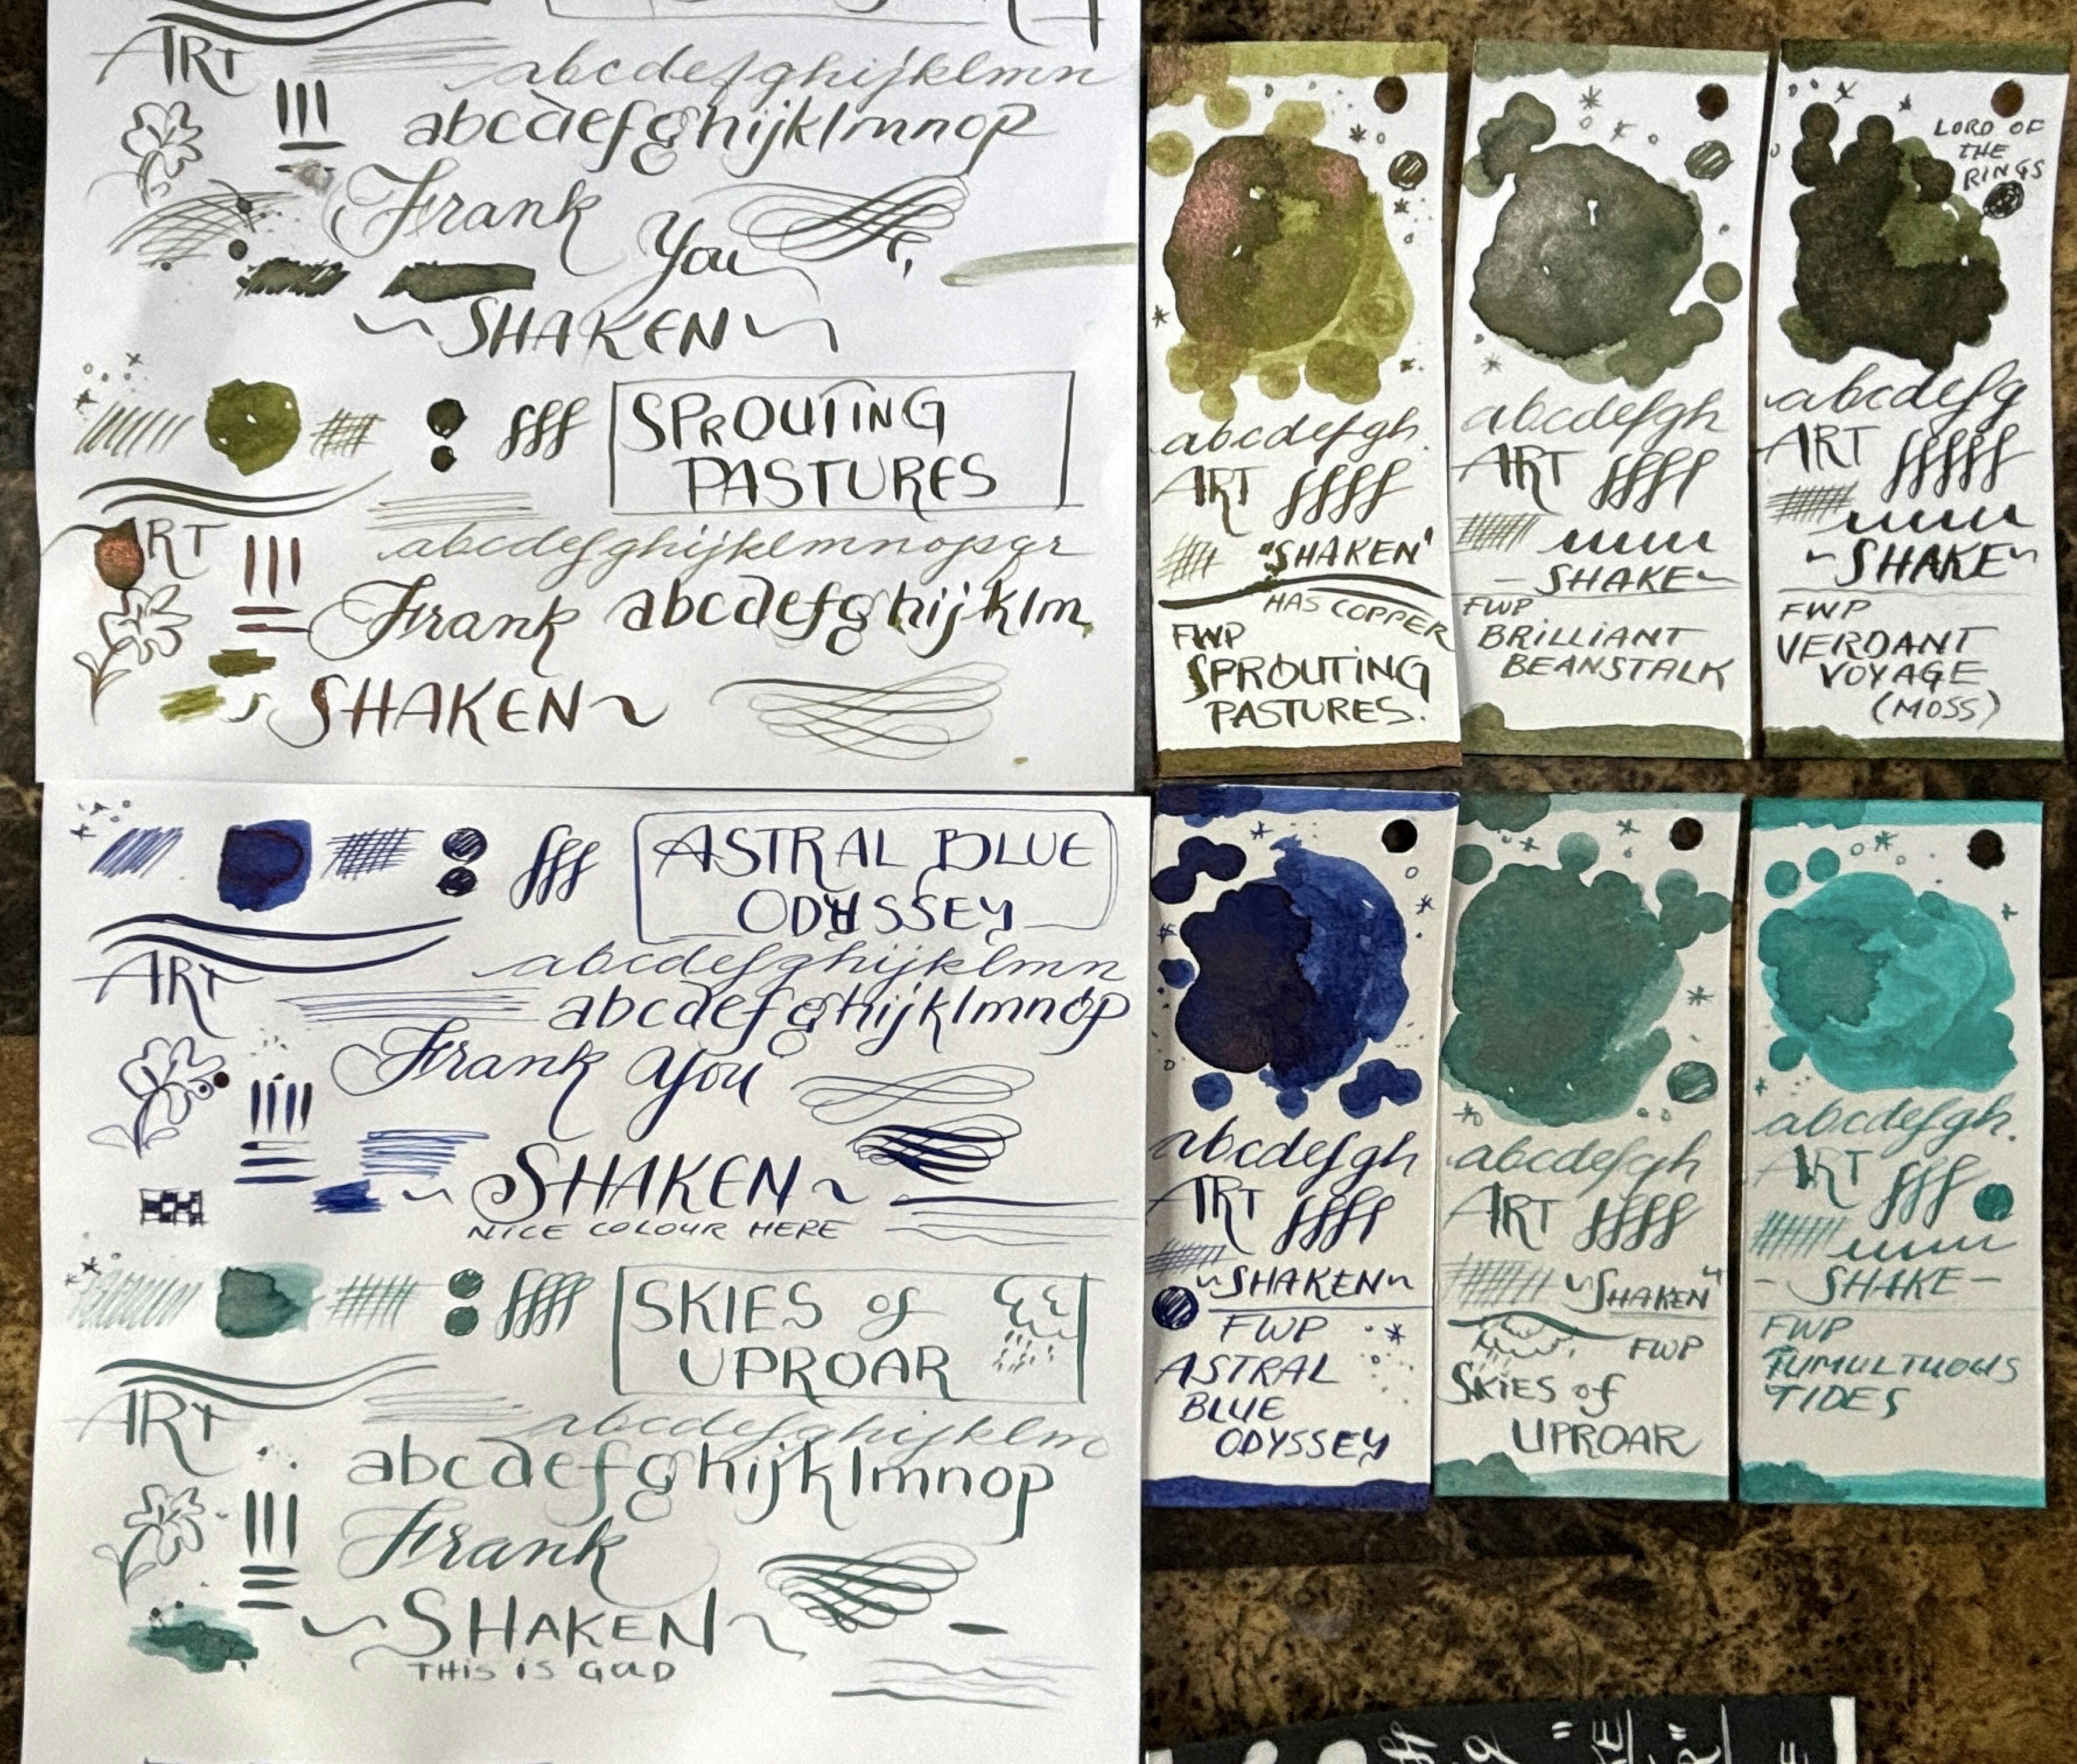 ART
abcdefghijklmn
abcdefghijklmnop
Frank
You
SHAKEN
SPROUTING
PASTURES
ART
abcdefghijklmnopqr
Frank
abcdefghijklm
SHAKEN
ASTRAL BLUE
ODYSSEY
ART
abcdefghijklmn
abcdefghijklmnop
Frank You
SHAKEN
NICE COLOUR HERE
SKIES of
UPROAR
ART
abcdefghijklm
abcdefghijklmnop
Frank
SHAKEN
THIS IS GUD
abcdefgh.
ART
"SHAKEN"
HAS COPPER
FWP
SPROUTING
PASTURES.
abcdefgh
ART
SHAKE
FWP
BRILLIANT
BEANSTALK
LORD OF
THE
RINGS
abcdefg
ART
~SHAKE~
FWP
VERDANT
VOYAGE
(MOSS)
abcdefgh
ART
~SHAKEN~
FWP
ASTRAL
BLUE
ODYSSEY
abcdefgh
ART
"SHAKEN"
FWP
SKIES of
UPROAR
abcdefgh.
ART
-SHAKE-
FWP
TUMULTUOUS
TIDES